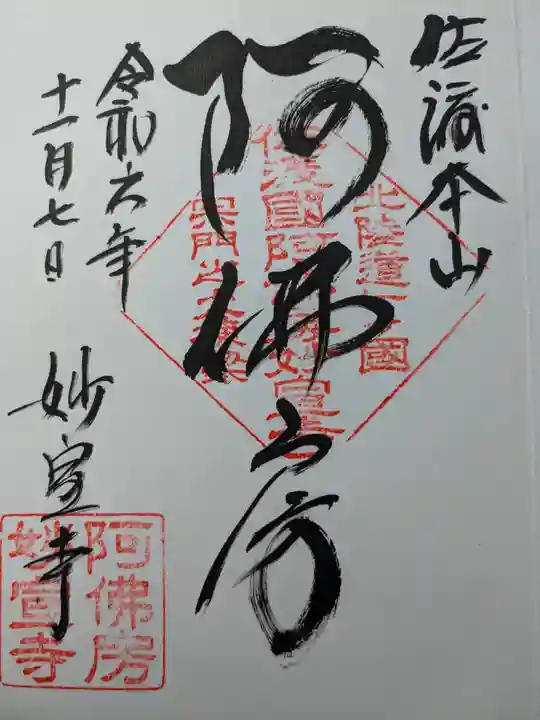 佐渡本山
阿佛房
令和六年
十一月七日
妙宣寺
北陸道七國
佐渡國阿佛房妙宣寺
阿佛房
妙宣寺